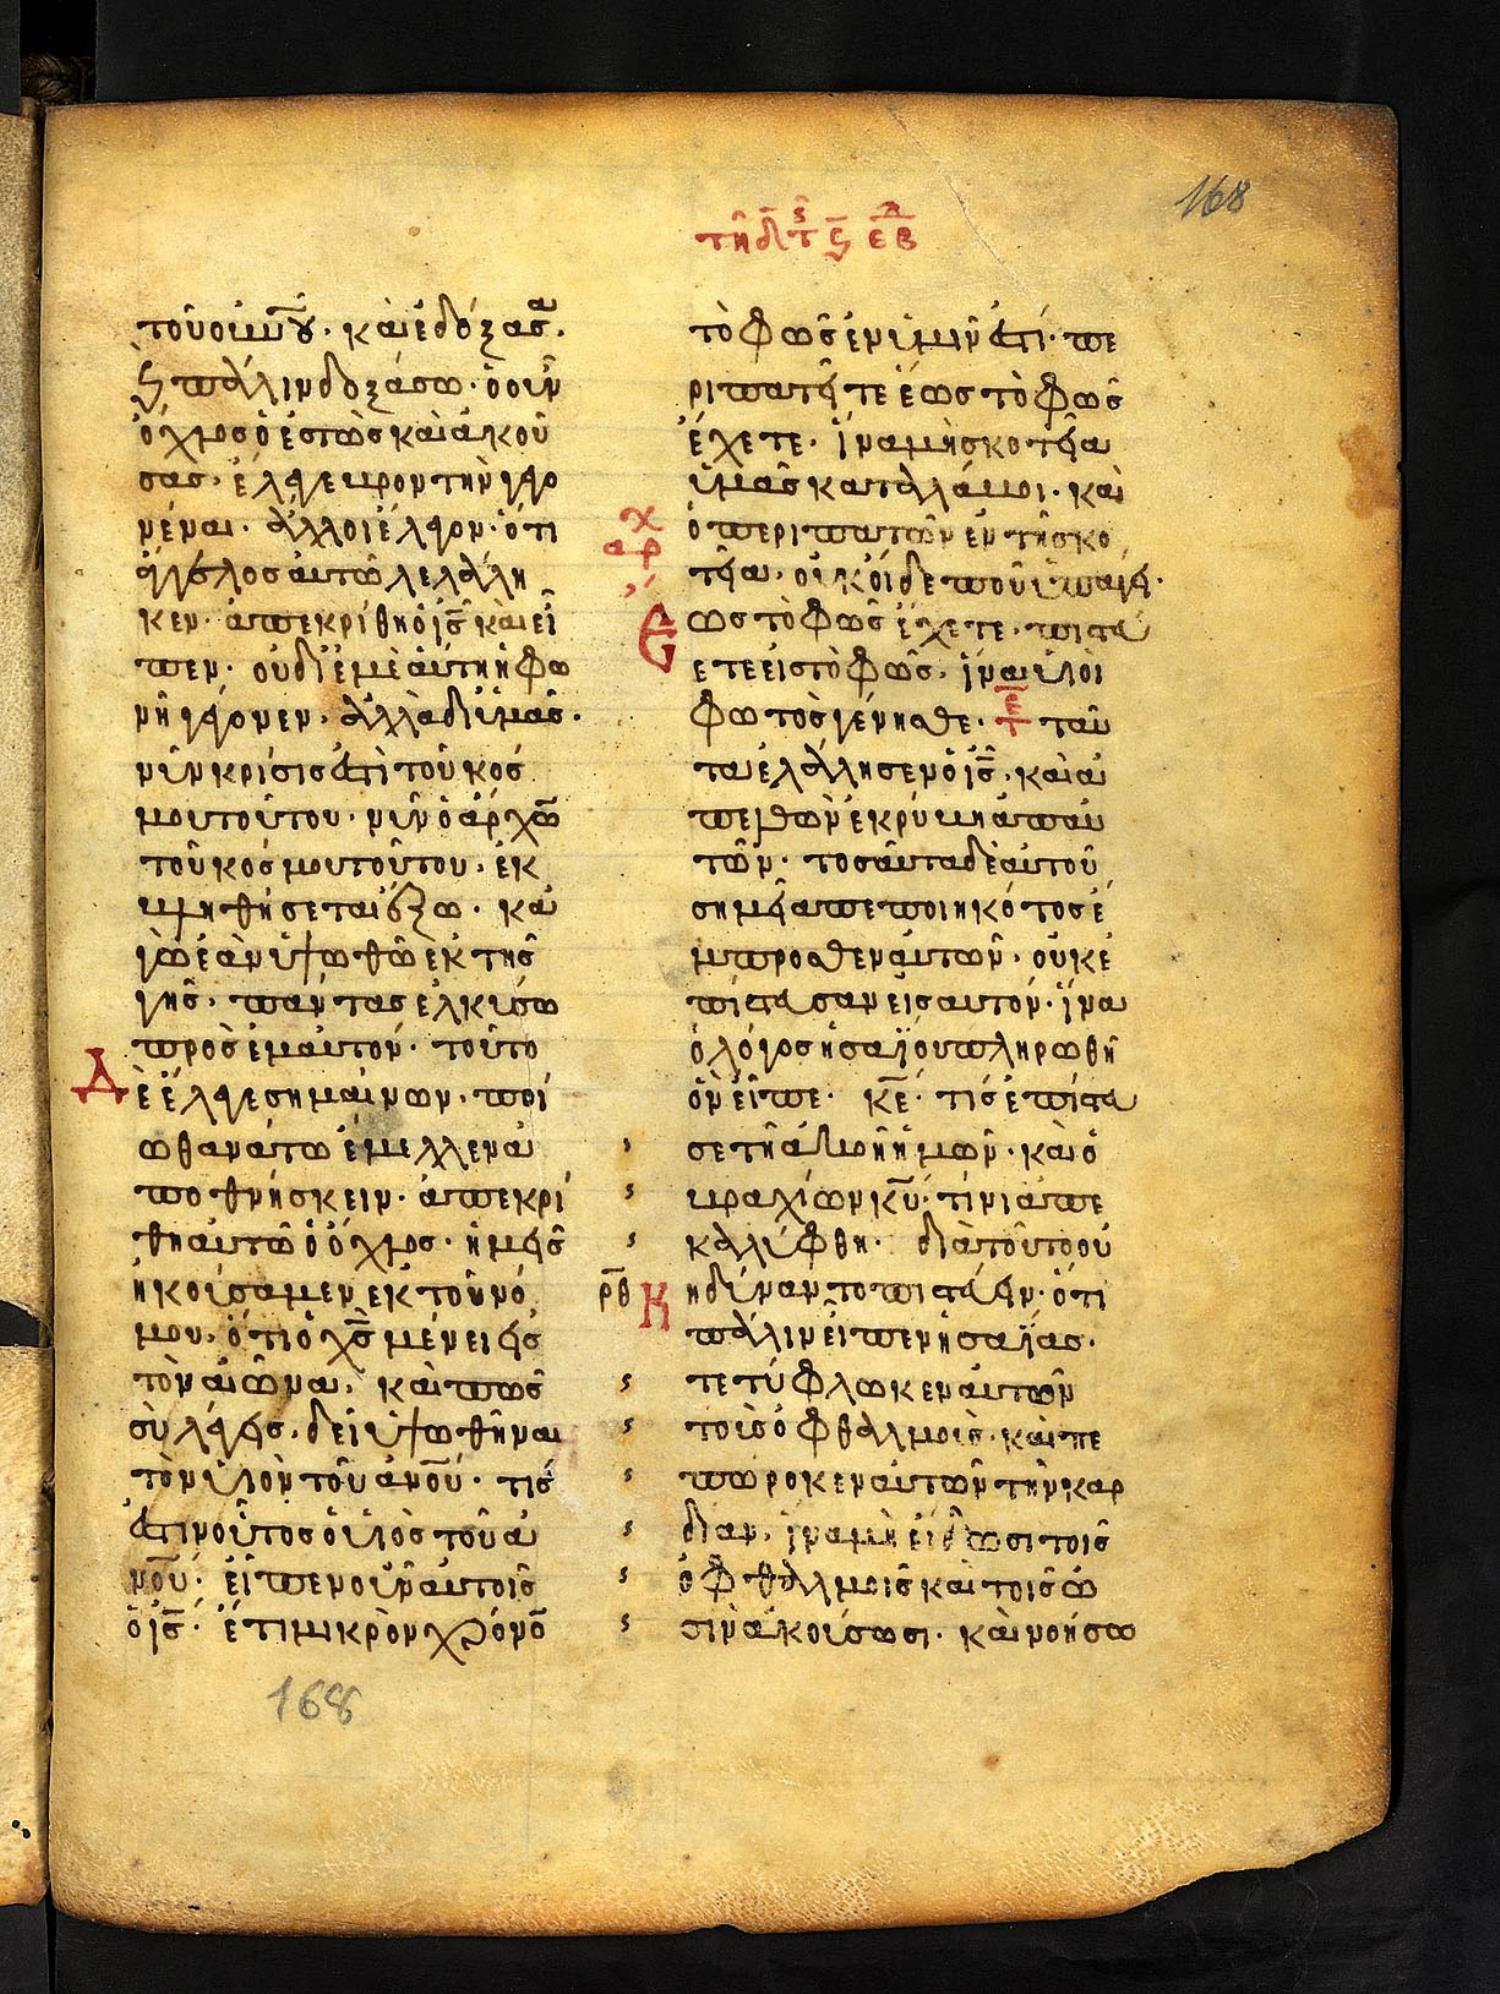 168
τῆ δ τ ς ς ε β
τοῦ οὐνοῦ· καὶ ἐδόξασα·
ϛ πάλιν δοξάσω· ὁ οὖν
ὄχλος ὁ ἑστὼς καὶ ἀκού
σας· ἔλεγεν βροντὴν γεγο
νέναι· ἄλλοι ἔλεγον· ὅτι
ἄγγελος αὐτῶ λελάλη
κεν· ἀπεκρίθη ὁ ις καὶ εἶ
πεν· οὐ δι ἐμὲ αὕτη ἡ φω
νὴ γέγονεν· ἀλλὰ δι ὑμᾶς·
νῦν κρίσις ἐστὶ τοῦ κόσ
μου τούτου· νῦν ὁ ἄρχων
τοῦ κόσμου τούτου· ἐκ
βληθήσεται ἔξω· κα
γὼ ἐὰν ὑψωθῶ ἐκ τῆς
γῆς· πάντας ἑλκύσω
πρὸς ἐμαυτόν· τοῦτο
Δ ὲ ἔλεγε σημαίνων· ποί
ω θανάτω ἔμελλεν ἀ
ποθνήσκειν· ἀπεκρί
θη αὐτῶ ὁ ὄχλος· ἡμεῖς
ἠκούσαμεν ἐκ τοῦ νό
μου· ὅτι ὁ χς μένει εἰς
τὸν αἰῶνα· καὶ πῶς
σὺ λέγεις· δεῖ ὑψωθῆναι
τὸν υἱὸν τοῦ ανου· τίς
ἐστιν οὗτος ὁ υἱὸς τοῦ α
νου· εἶπεν οὖν αὐτοῖς
ὁ ις· ἔτι μικρὸν χρόνον
168
τὸ φῶς ἐν ὑμῖν ἐστι· πε
ριπατεῖτε ἕως τὸ φῶς
ἔχετε· ἵνα μὴ σκοτεία
ὑμᾶς καταλάβοι· καὶ
χ ὁ περιπατῶν ἐν τῆ σκο
αρ τεία· οὐκ οἶδε ποῦ ὑπάγει·
Ε ως τὸ φῶς ἔχετε· πιστεύ
ετε εἰς τὸ φῶς· ἵνα υἱοὶ
φωτὸς γένησθε· τε ταῦ
τα ἐλάλησεν ὁ ις· καὶ ἀ
πελθὼν ἐκρύβη ἀπ αυ
τῶν· τοσαῦτα δὲ αὐτοῦ
σημεῖα πεποιηκότος ἔ
μπροσθεν αὐτῶν· οὐκ ἐ
πίστευσαν εἰς αὐτόν· ἵνα
ὁ λόγος ἡσαΐου πληρωθῆ
ὃν εἶπε· κε· τίς ἐπίστευ
σε τῆ ἀκοῆ ἡμῶν· καὶ ὁ
βραχίων κυ· τίνι ἀπε
καλύφθη· διὰ τοῦτο οὐ
ρθ Κ ηδύναντο πιστεύειν· ὅτι
πάλιν εἶπεν ἡσαΐας·
τετύφλωκεν αὐτῶν
τοὺς ὀφθαλμοὺς· καὶ πε
πώροκεν αὐτῶν τὴν καρ
δίαν· ἵνα μὴ εἴδωσι τοῖς
ὀφθαλμοῖς καὶ τοῖς ὠ
σὶν ἀκούσωσι· καὶ νοήσω